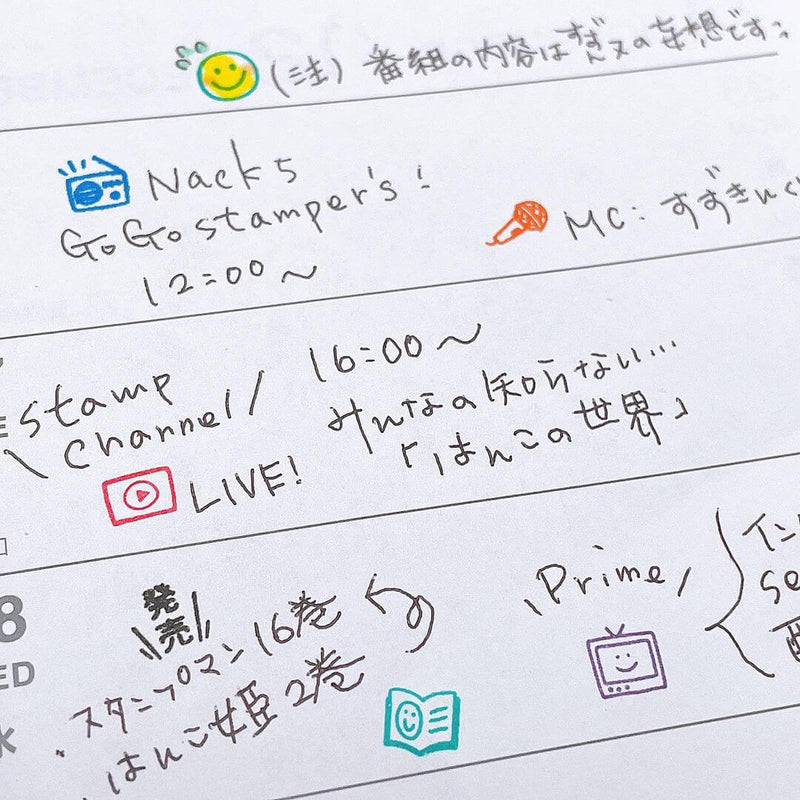 (注) 番組の内容はすずきんぐの妄想です
Nack5
GoGo stamper's!
12:00〜
MC:すずきんぐ
\stamp
Channel/
LIVE!
16:00〜
みんなの知らない…
「はんこの世界」
8
ED
水
\発売/
・スタンプマン 16巻
・はんこ姫 2巻
\Prime/